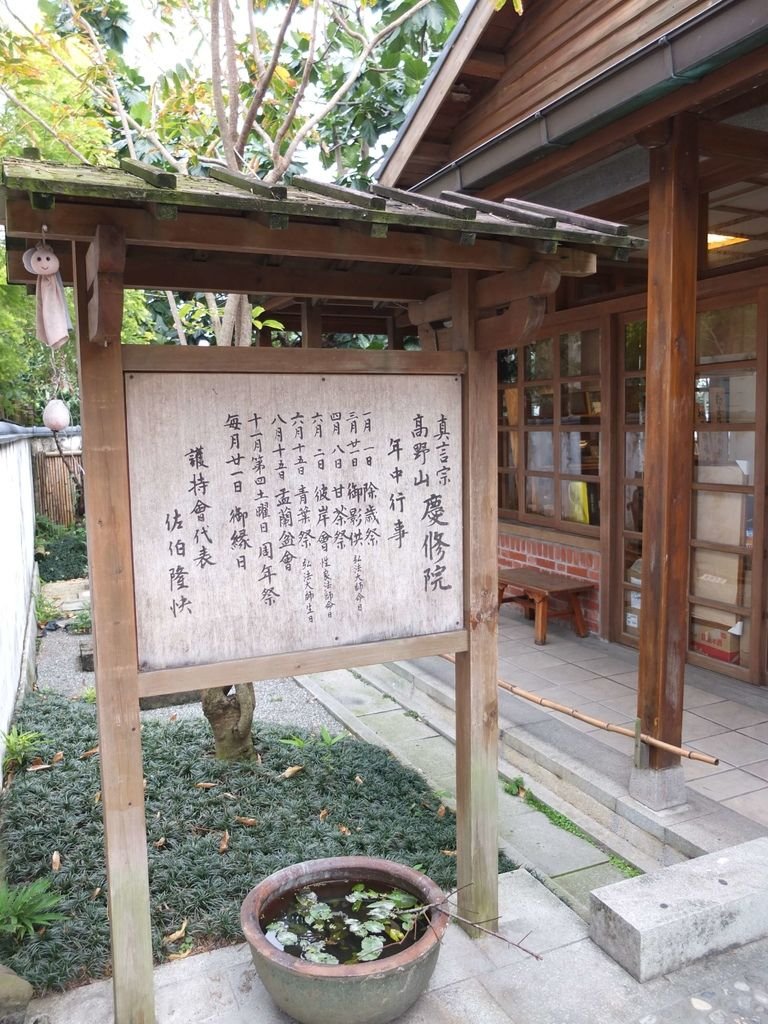 真言宗
高野山 慶修院
年中行事
一月一日 除歳祭
三月廿一日 御影供 弘法大師命日
四月八日 甘茶祭
六月二日 彼岸會
六月十五日 青葉祭 弘法大師生日
八月十五日 盂蘭盆會
十一月第四土曜日 周年祭
每月廿一日 御緣日
護持會代表
佐伯隆快